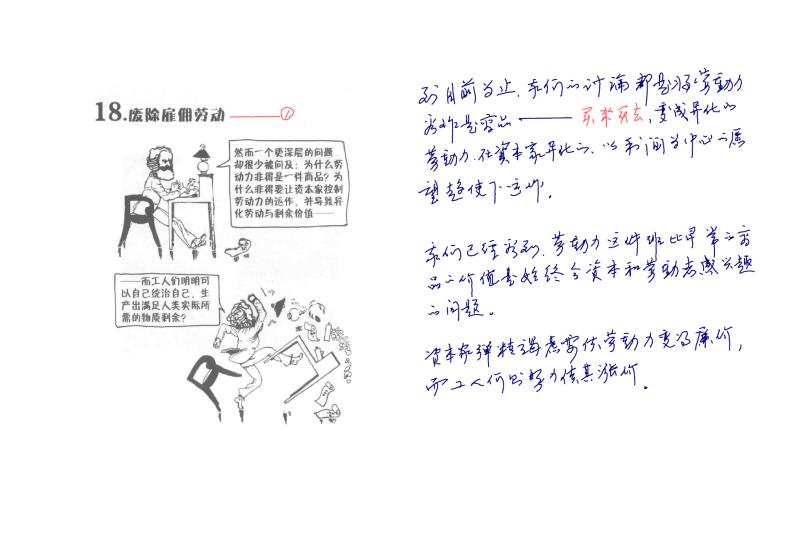 18.废除雇佣劳动 ——①
然而一个更深层的问题
却很少被问及：为什么劳
动力非得是一件商品？为
什么非得要让资本家控制
劳动力的运作，并导致异
化劳动与剩余价值——
——而工人们明明可
以自己统治自己，生
产出满足人类实际所
需的物质剩余？
到目前为止，我们的讨论都是将劳动力
看作是商品——买来卖去，变成异化的
劳动力，在资本家异化的、以利润为中心的愿
望趋使下运作。
我们已经看到，劳动力这件班比寻常的商
品的价值是始终令资本和劳动者感兴趣
的问题。
资本家弹精竭虑要使劳动力变得廉价，
而工人们则努力使其涨价。